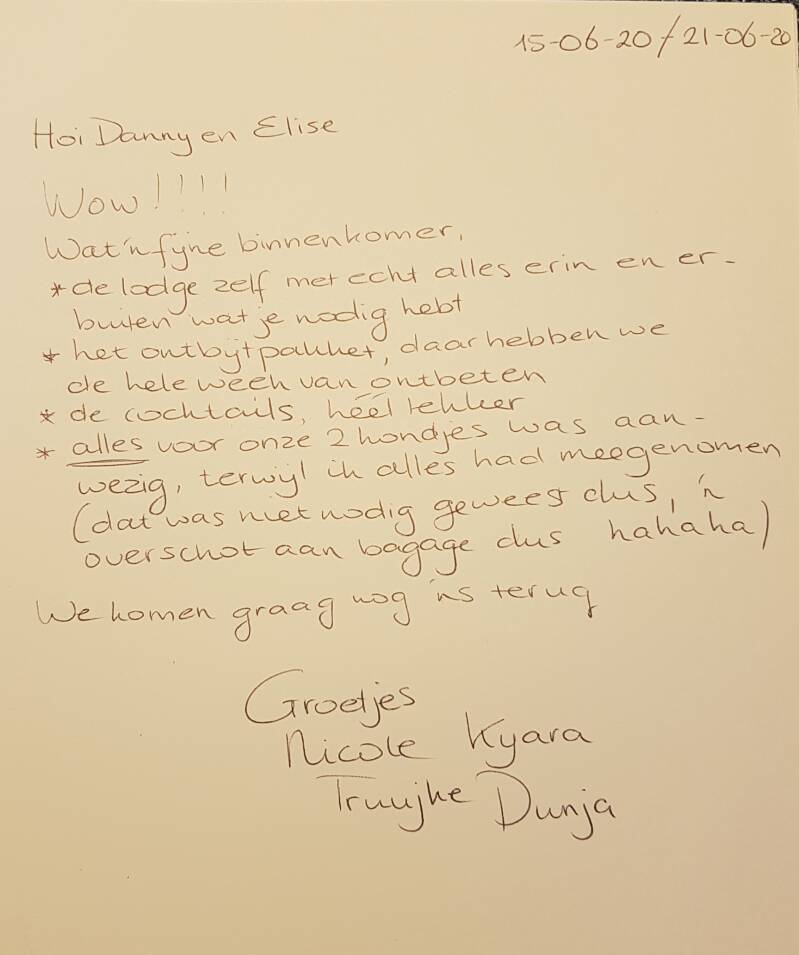 15-06-20 / 21-06-20
Hoi Danny en Elise
Wow!!!!
Wat 'n fijne binnenkomer,
* de lodge zelf met echt alles erin en er-
buiten wat je nodig hebt
* het ontbijtpakket, daar hebben we
de hele week van ontbeten
* de cocktails, héél lekker
* alles voor onze 2 hondjes was aan-
wezig, terwijl ik alles had meegenomen
(dat was niet nodig geweest dus, 'n
overschot aan bagage dus hahaha)
We komen graag nog 'ns terug
Groetjes
Nicole Kyara
Truujke Dunja